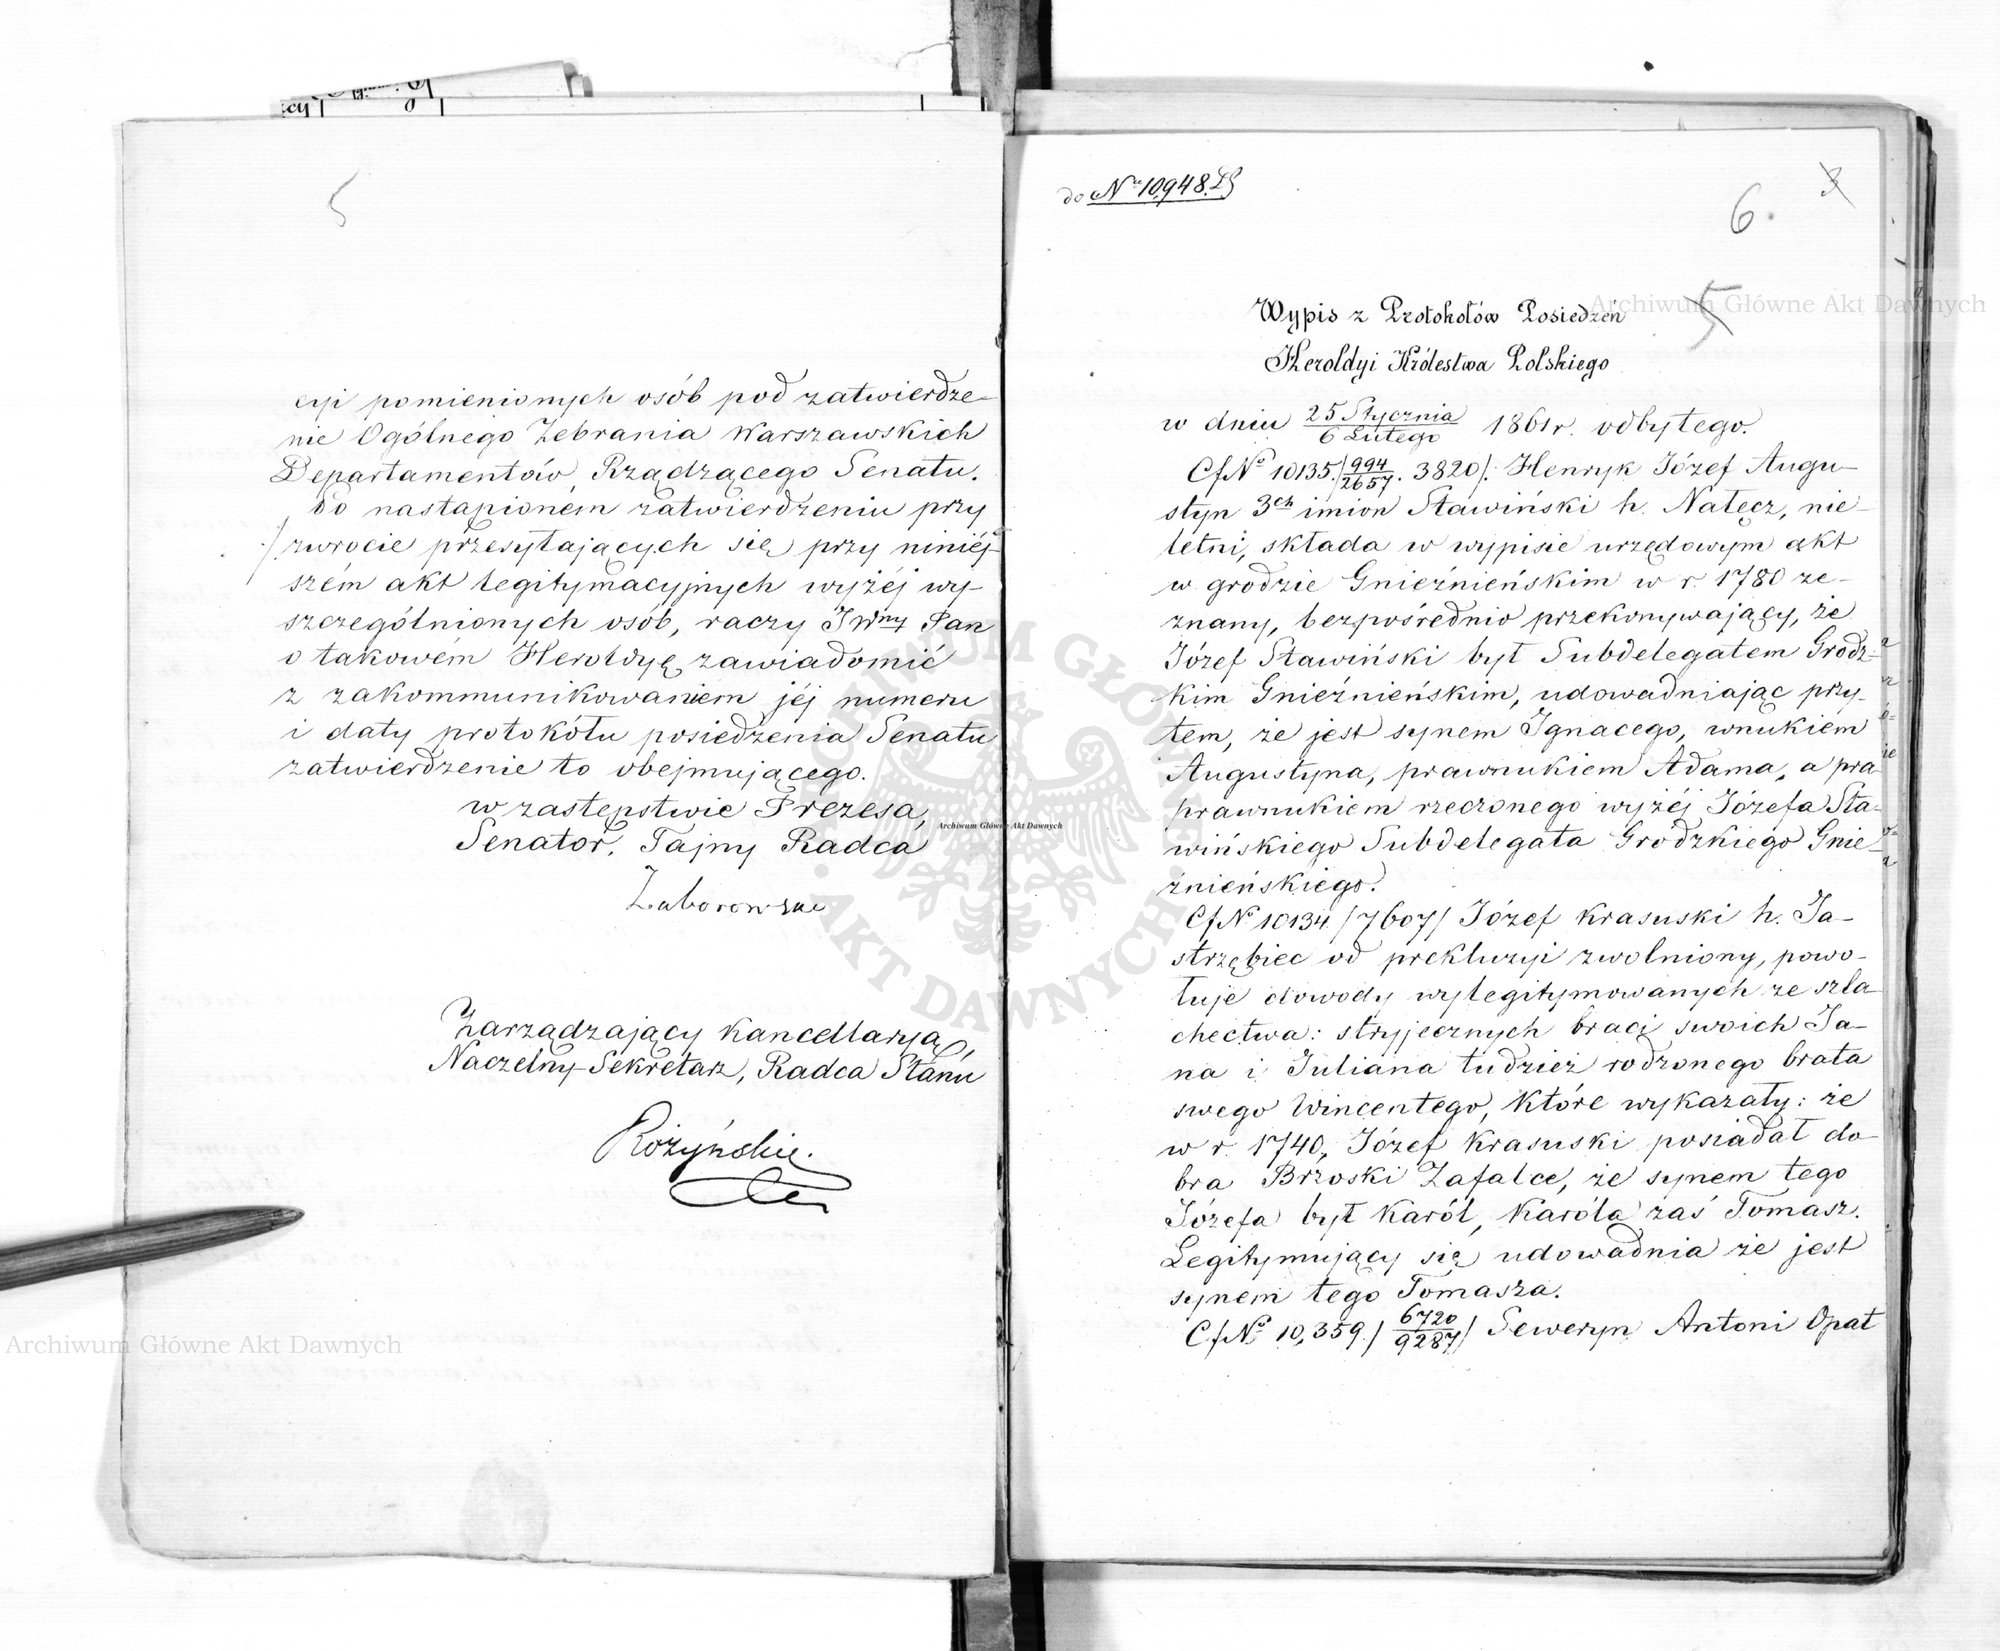 5
cyi pomienionych osób pod zatwierdze-
nie Ogólnego Zebrania Warszawskich
Departamentów Rządzącego Senatu.
Po nastąpioném zatwierdzeniu przy
zwrocie przesyłających się przy niniéj-
szém akt legitymacyjnych wyżéj wy-
szczególnionych osób, raczy JWny Pan
o takowém Heroldyę zawiadomić
z zakommunikowaniem jéj numeru
i daty protokółu posiedzenia Senatu
zatwierdzenie to obejmującego.
w zastępstwie Prezesa,
Senator, Tajny Radca
Zaborowski
Zarządzający Kancellaryą,
Naczelny Sekretarz, Radca Stanu
Rożyński.
do Nru 10,948.
3
6.
5
Wypis z Protokołów Posiedzeń
Heroldyi Królestwa Polskiego
w dniu 25 Stycznia / 6 Lutego 1861 r. odbytego.
Cf No 10135./994/2657. 3820/. Henryk Józef Augu-
styn 3ch imion Sławiński h. Nałęcz, nie-
letni, składa w wypisie urzędowym akt
w grodzie Gnieźnieńskim w r. 1780 ze-
znany, bezpośrednio przekonywający, że
Józef Sławiński był Subdelegatem Grodz-
kim Gnieźnieńskim, udowadniając przy-
tem, że jest synem Ignacego, wnukiem
Augustyna, prawnukiem Adama, a pra
prawnukiem rzeczonego wyżéj Józefa Sła-
wińskiego Subdelegata Grodzkiego Gnie-
źnieńskiego.
Cf No 10134 /7607/ Józef Krasuski h. Ja-
strzębiec od prekluzyi zwolniony, powo-
łuje dowody wylegitymowanych ze szla-
chectwa: stryjecznych braci swoich Ja-
na i Juliana tudzież rodzonego brata
swego Wincentego, które wykazały: że
w r. 1740, Józef Krasuski posiadał do-
bra Brzoski Zafalce, że synem tego
Józefa był Karól, Karóla zaś Tomasz.
Legitymujący się udowadnia że jest
synem tego Tomasza.
Cf No 10,359 /6720/9287/ Seweryn Antoni Opat
Archiwum Główne Akt Dawnych
Archiwum Główne Akt Dawnych
Archiwum Główne Akt Dawnych
ARCHIWUM GŁÓWNE AKT DAWNYCH